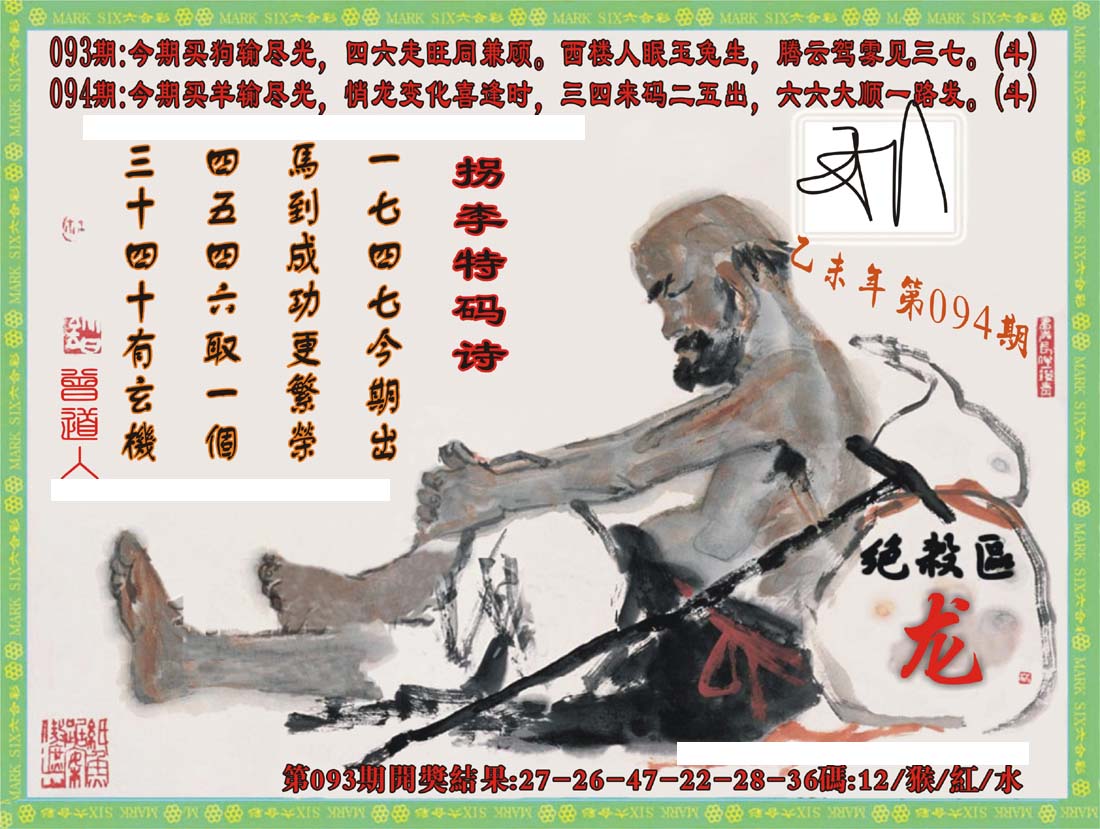 MARK SIX六合彩
093期:今期买狗输尽光，四六走旺同兼顾。西楼人眠玉兔生，腾云驾雾见三七。(斗)
094期:今期买羊输尽光，悄龙变化喜逢时，三四来码二五出，六六大顺一路发。(斗)
拐李特码诗
一七四七今期出
馬到成功更繁榮
四五四六取一個
三十四十有玄機
曾道人
乙未年第094期
绝殺區
龙
第093期開獎結果:27-26-47-22-28-36碼:12/猴/紅/水